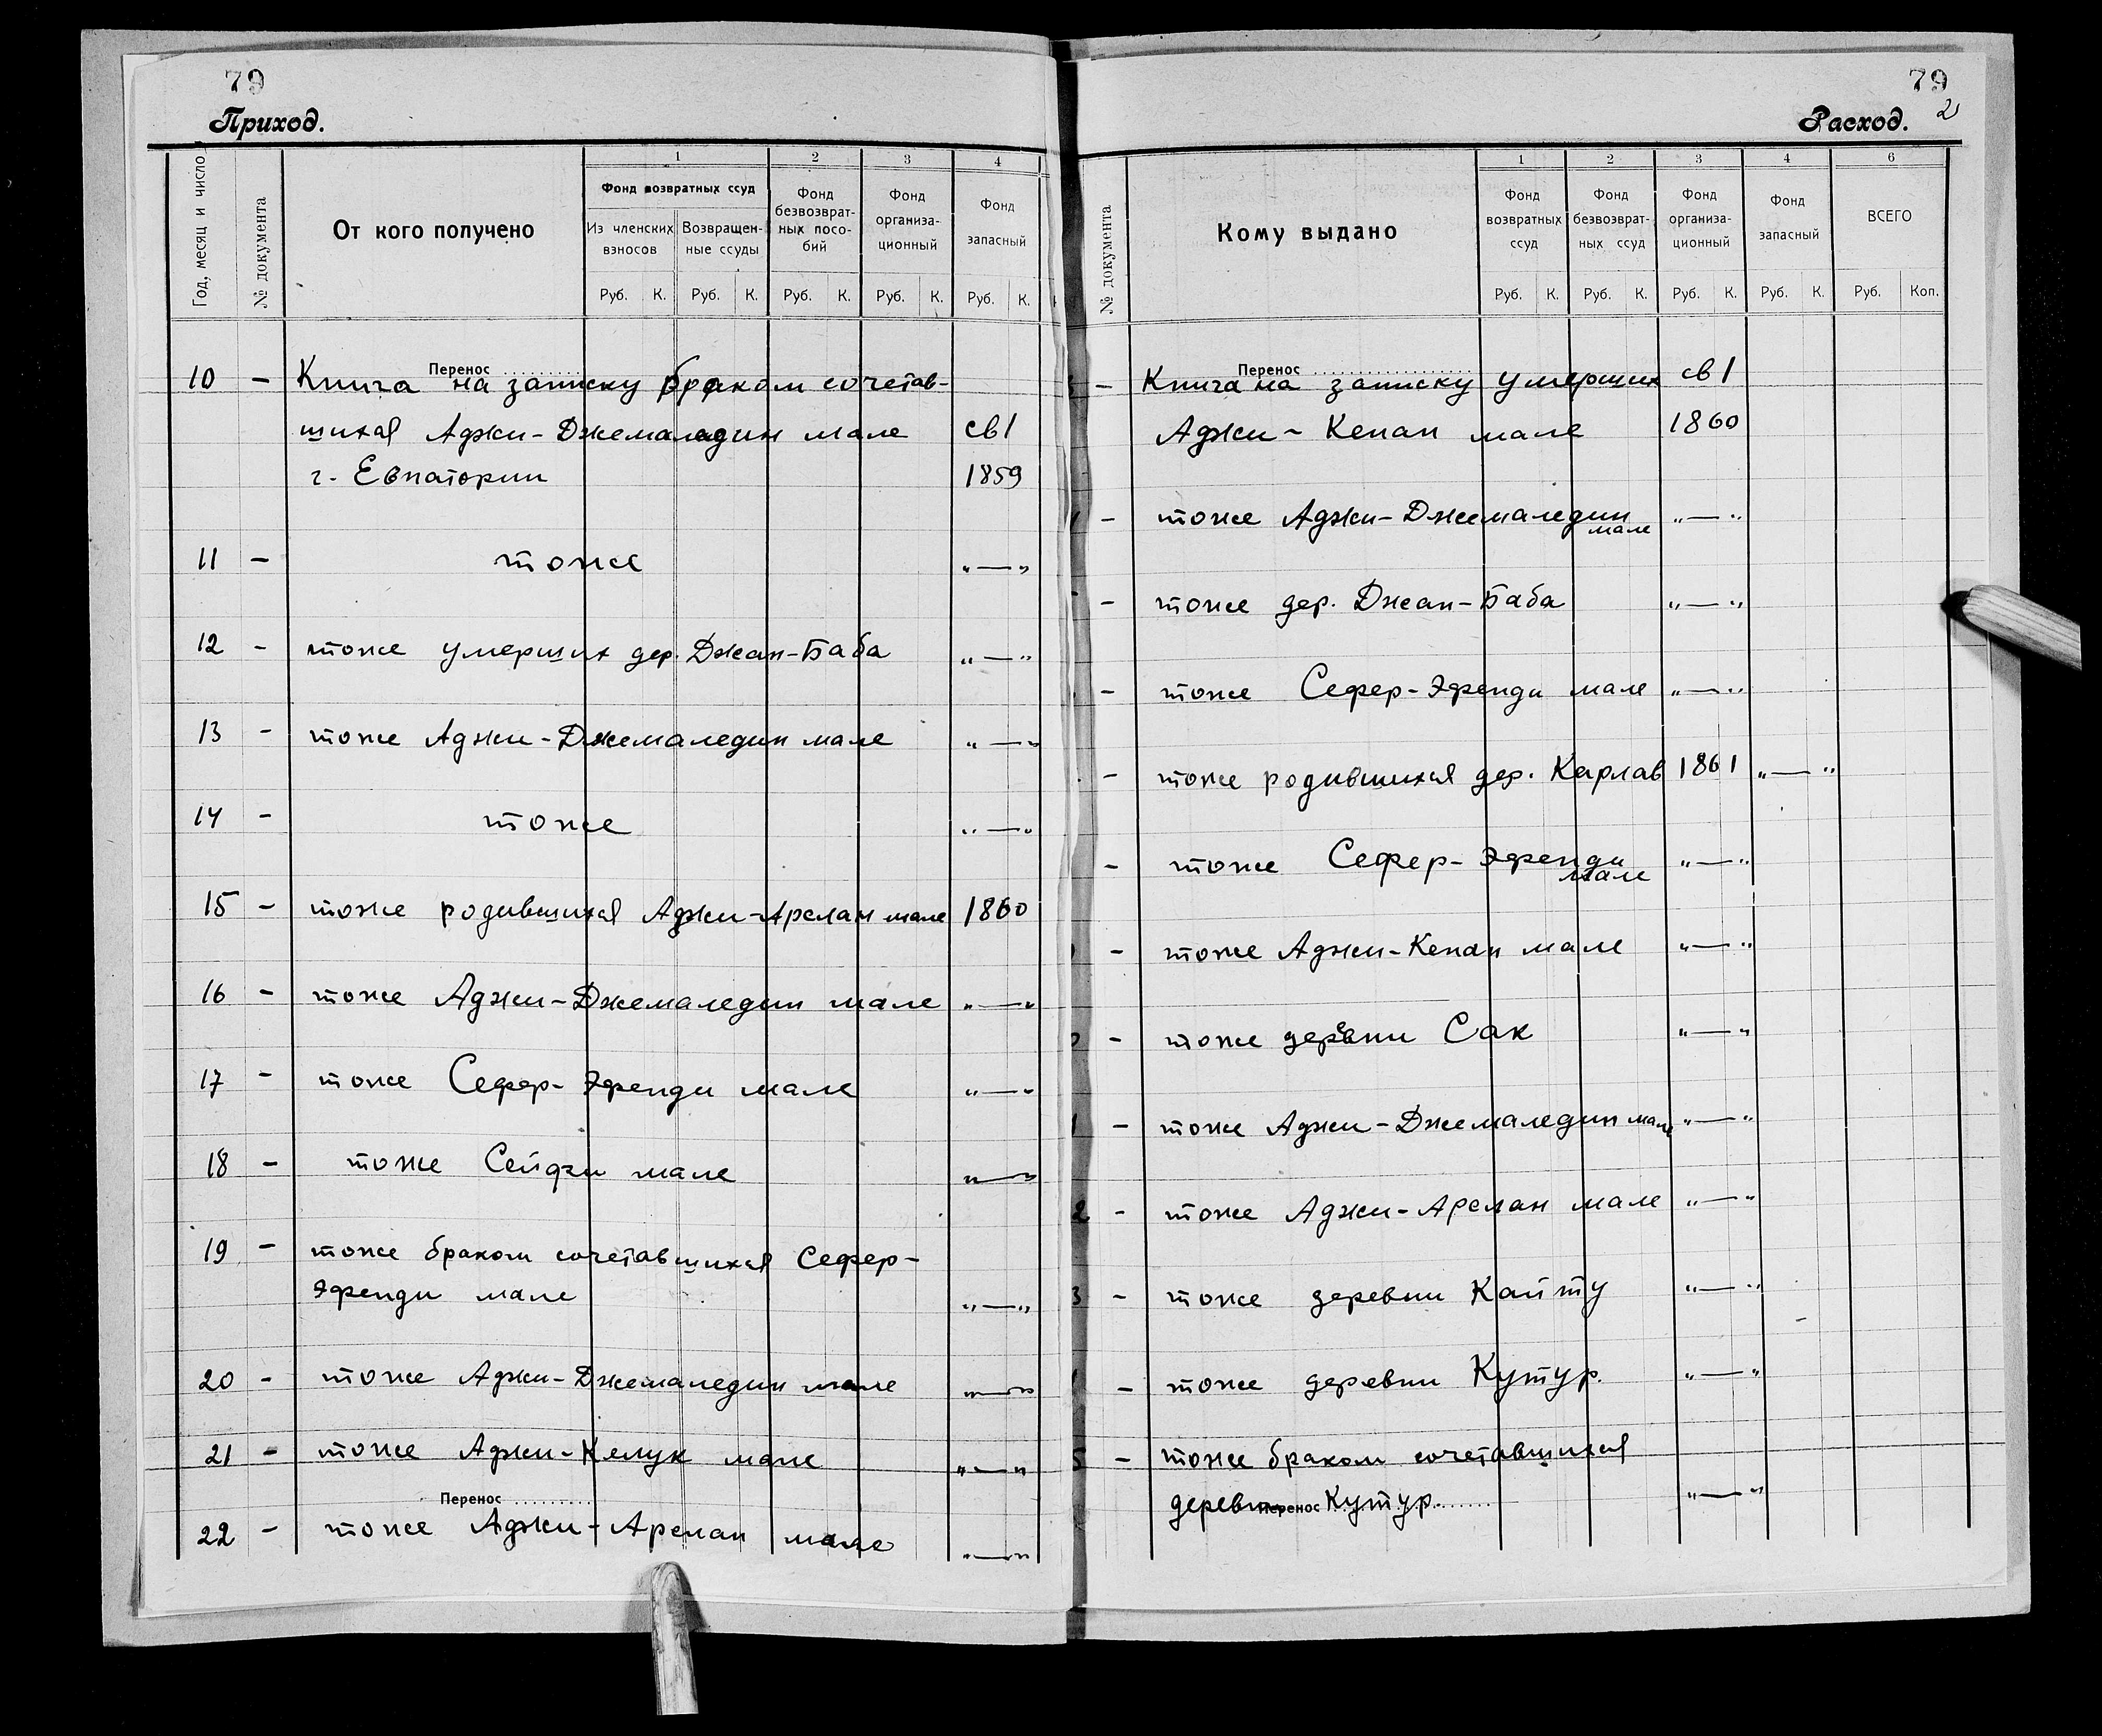 79
Приход.
Год, месяц и число
№ документа
От кого получено
1
Фонд возвратных ссуд
Из членских взносов
Возвращен-ные ссуды
2
Фонд безвозврат-ных посо-бий
3
Фонд организа-ционный
4
Фонд запасный
Руб. К. Руб. К. Руб. К. Руб. К. Руб. К.
Перенос
10 - Книга на записку браком сочетав-
шихся Аджи-Джемаледин мале св 1
г. Евпатории 1859
11 - тоже "—"
12 - тоже умерших дер. Джан-Баба "—"
13 - тоже Аджи-Джемаледин мале "—"
14 - тоже "—"
15 - тоже родившихся Аджи-Арслан мале 1860
16 - тоже Аджи-Джемаледин мале "—"
17 - тоже Сефер-Эфенди мале "—"
18 - тоже Сейфзи мале "—"
19 - тоже браком сочетавшихся Сефер-
Эфенди мале "—"
20 - тоже Аджи-Джемаледин мале "—"
21 - тоже Аджи-Келук мале "—"
Перенос
22 - тоже Аджи-Арслан мале "—"
79
2
Расход.
№ документа
Кому выдано
1
Фонд возвратных ссуд
2
Фонд безвозврат-ных ссуд
3
Фонд организа-ционный
4
Фонд запасный
6
ВСЕГО
Руб. К. Руб. К. Руб. К. Руб. К. Руб. Коп.
Перенос
- Книга на записку умерших св 1
Аджи-Кепан мале 1860
- тоже Аджи-Джемаледин "—"
мале
- тоже дер. Джан-Баба "—"
- тоже Сефер-Эфенди мале "—"
- тоже родившихся дер. Карлав 1861 "—"
- тоже Сефер-Эфенди "—"
мале
- тоже Аджи-Кепан мале "—"
- тоже деревни Сак "—"
- тоже Аджи-Джемаледин мале "—"
2 - тоже Аджи-Арслан мале "—"
3 - тоже деревни Кайту "—"
- тоже деревни Кутур. "—"
5 - тоже браком сочетавшихся
деревни Кутур. "—"
Перенос